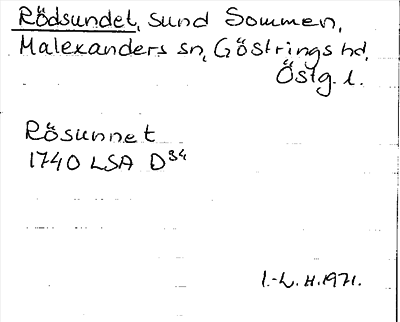 Rödsundet, sund Sommen,
Malexanders sn, Göstrings hd,
Östg. l.
Rösunnet
1740 LSA D34
I.-L. H. 1971.